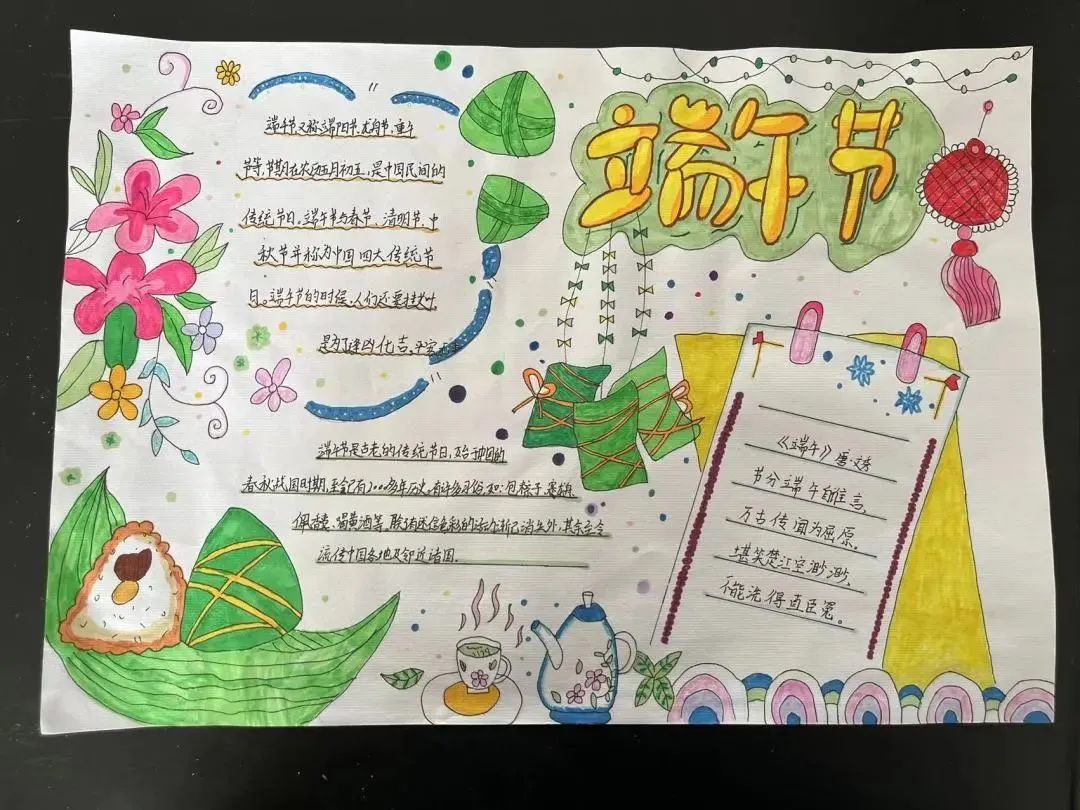 端午节
端午节又称端阳节、龙舟节、重午
节等,节期在农历五月初五,是中国民间的
传统节日。端午节与春节、清明节、中
秋节并称为中国四大传统节
日。端午节的时候,人们还要挂艾叶
是为了逢凶化吉、平安
端午节是古老的传统节日,始于中国的
春秋战国时期,至今已有2000多年历史。有许多习俗,如:包粽子、赛龙舟、
佩香囊、喝黄酒等。除 迷信色彩的活动渐已消失外,其余至今
流传中国各地及邻近诸国。
《端午》唐·文秀
节分端午自谁言,
万古传闻为屈原。
堪笑楚江空渺渺,
不能洗得直臣冤。